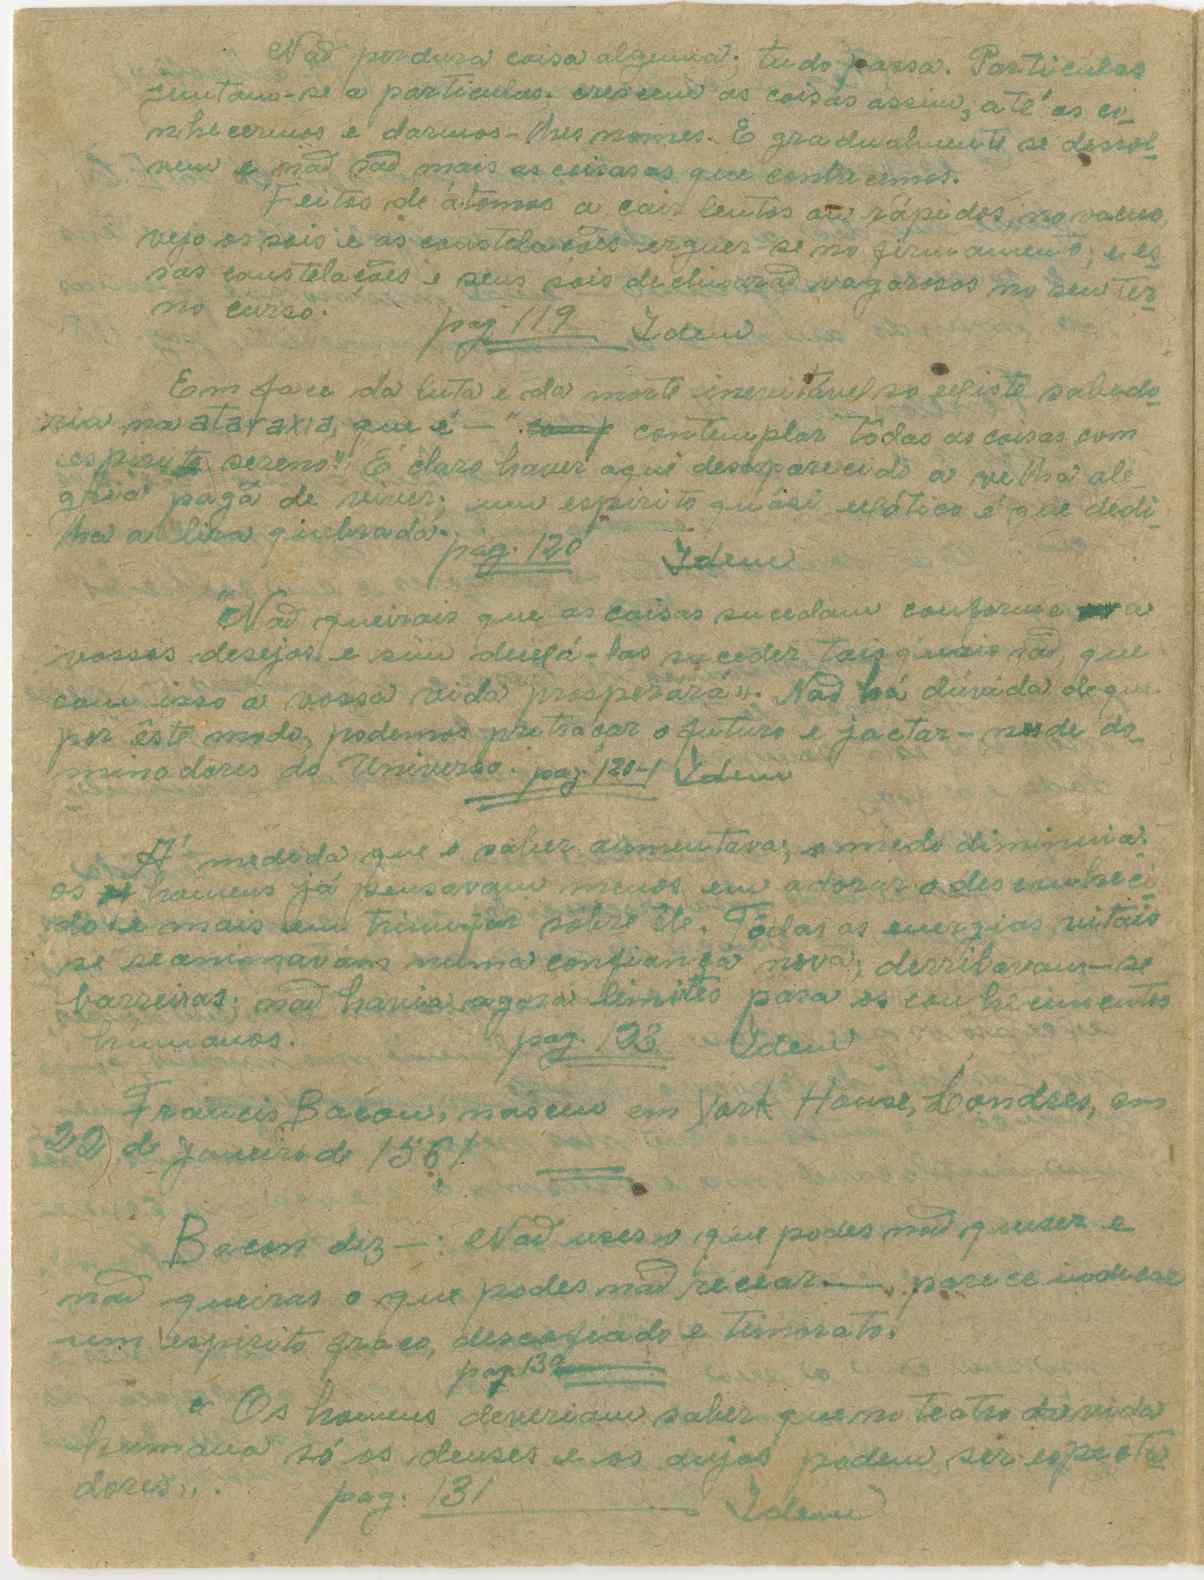 Não perdura coisa alguma; tudo passa. Particulas
juntam-se a particulas. crescem as coisas assim, até as co-
nhecermos e darmos-lhes nomes. E gradualmente se dissol-
vem e não são mais as coisas as que conhecemos.
Feitos de átomos a cair lentos ou rápidos, no vacuo,
vejo os sois e as constelações erguer-se no firmamento; e es-
sas constelações e seus sois declinarão vagarosos no seu ter-
no curso. pag 119 Idem
Em face da luta e da morte inevitável só existe sabedo-
ria na ataraxia, que é - "contemplar todas as coisas com
espirito sereno". É claro haver aqui desaparecido a velha ale-
gria pagã de viver; um espirito quási exótico é que dedi-
lha a lira quebrada. pág. 120 Idem
"Não queirais que as coisas sucedam conforme a
vossos desejos e sim deixá-las suceder tais quais são, que
com isso a vossa vida prosperará". Não há dúvida de que
por êste modo, podemos pretraçar o futuro e jactar-nos de do-
minadores do Universo. pag. 120-1 Idem
A' medida que o saber aumentava, o medo diminuia;
os homens já pensavam menos em adorar o desconheci-
do e mais em triunfar sôbre êle. Tôdas as energias vitais
se reanimavam numa confiança nova; derribavam-se
barreiras; não havia agora limites para os conhecimentos
humanos. pag. 123 Idem
Francis Bacon, nasceu em York House, Londres, em
22 de janeiro de 1561
Bacon diz -: Não uses o que podes não quiser e
não queiras o que podes não recear —, parece indicar
um espirito fraco, descofiado e timorato.
pag. 130
Os homens deveriam saber que no teatro da vida
humana só os deuses e os anjos podem ser especta-
dores". pag. 131 Idem